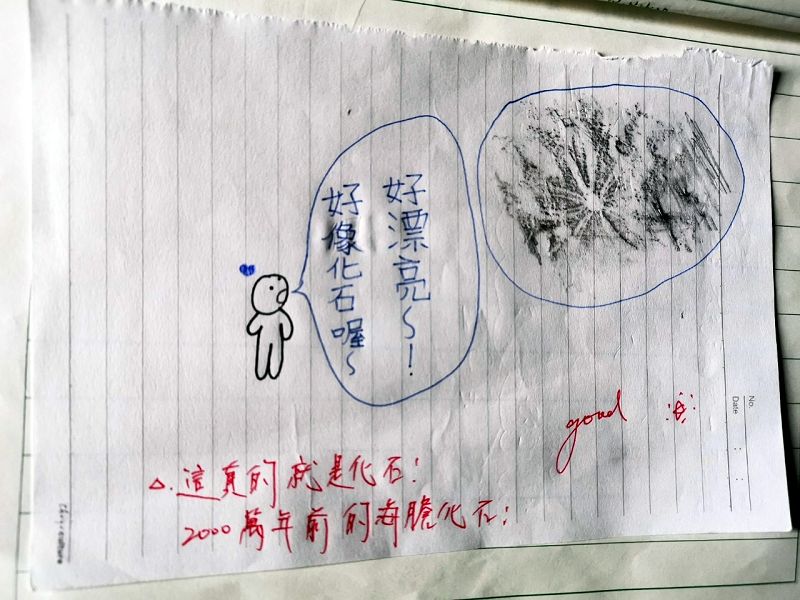 好漂亮~!
好像化石喔~
good
△.這真的就是化石!
2000萬年前的海膽化石!
No.
Date : :